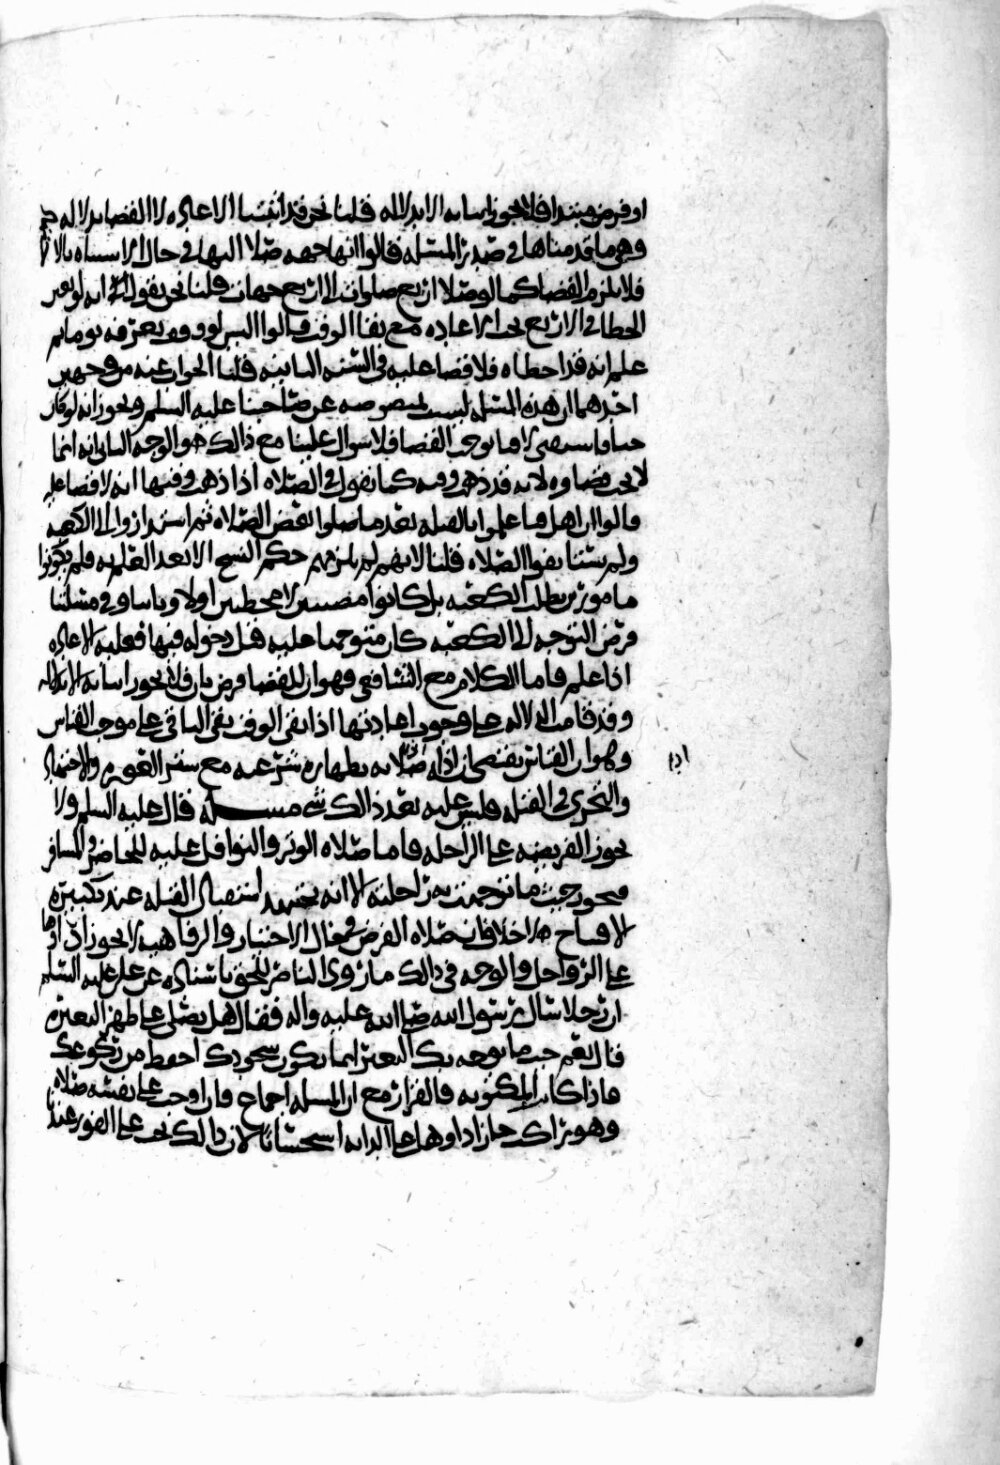 او فرض مبتدا فلا يجوز اثباته الا بدلاله قلنا نحن قد اثبتنا الاعاده لا القضا بدلاله
وهي ما قدمناها في صدر المسئله قالوا انها جهه صلا اليها في حال الاشتباه
فلا يلزم القضا كما لو صلا اربع صلوات الا اربع جهات قلنا نحن نقول انه لو تعين
الخطا في الاربع تجب الاعاده مع بقا الوقت قالوا اليس لو وقف بعرفه يوما ثم
علم انه قد اخطاه فلا قضا عليه في السنه الثانيه قلنا الجواب عنه من وجهين
احدهما ان هذه المسئله ليست بمنصوصه عن صاحبنا عليه السلم ويجوز انه لو كان
حيا فاستفتي لافتا بوجوب القضا فلا سوال علينا مع ذالك والوجه الثاني انه انما
لا يجب قضاوه لانه قد ذهب وقته كما نقول في الصلاه اذا ذهب وقتها انه لا قضا عليه
قالوا ان اهل قبا علموا بالقبله بعد ما صلوا بعض الصلاه ثم استداروا الى الكعبه
ولم يستانفوا الصلاه قلنا لانهم لم يلزمهم حكم النسخ الا بعد العلم به فلم يكونوا
مامورين بطلب الكعبه بل كانوا مصيبين لا مخطيين اولا وثانيا وفي مسئلتنا
فرض التوجه الى الكعبه كان متوجها عليه قبل دخوله فيها فعليه الاعاده
اذا علم فاما الكلام مع الشافعي فهو ان القضا فرض ثان فلا يجوز اثباته الا بدلاله
وقد قامت الدلاله على وجوب اعادتها اذا بقي الوقت بقي الباقي على موجب القياس
وهو ان القياس يقتضي ان اذا صلاته بطهاره شرعيه مع ستر العوره والاجتهاد
والتحري في القبله فليس عليه بعد ذالك شي مسئله قال عليه السلم ولا
تجوز الفريضه على الراحله فاما صلاه الوتر والنوافل عليه للحاضر والمسافر
فيجوز حيث ما توجهت به راحلته الا انه استقبال القبله عند تكبيره
الافتتاح لا خلاف ان صلاه الفرض في حال الاختيار والرفاهيه لا يجوز اداوها
على الرواحل والوجه في ذالك ما روى الناصر للحق باسناده عن علي عليه السلم
ان رجلا سال رسول الله صلى الله عليه واله فقال هل يصلي على ظهر البعير
قال نعم حيث ما توجه بك البعير ايما يكون سجودك اخفض من ركوعك
فاذا كانت المكتوبه فالقرار مع ان المسله اجماع فان اوجب على نفسه صلاه
وهو نازل جاز اداوها على الدابه استحسانا لان ذالك يجب على الفور عندنا